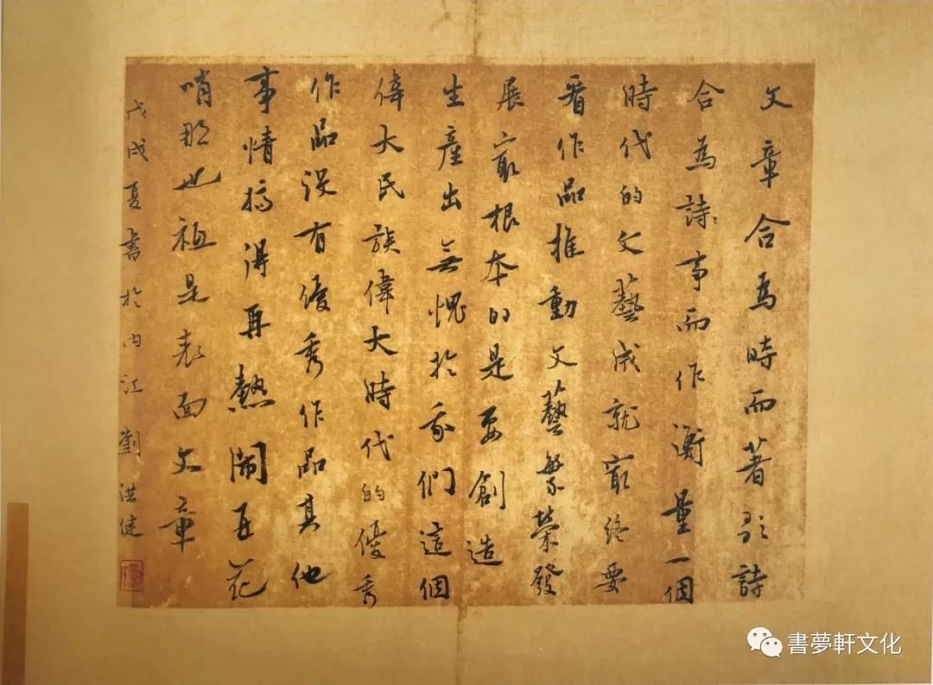 文章合爲時而著歌詩
合為詩事而作衡量一個
時代的文藝成就最終要
看作品推動文藝繁榮發
展最根本的是要創造
生產出無愧於我們這個
偉大民族偉大時代的優秀
作品沒有優秀作品其他
事情搞得再熱鬧再花
哨那也祗是表面文章
戊戌夏書於內江 劉洪健
書夢軒文化